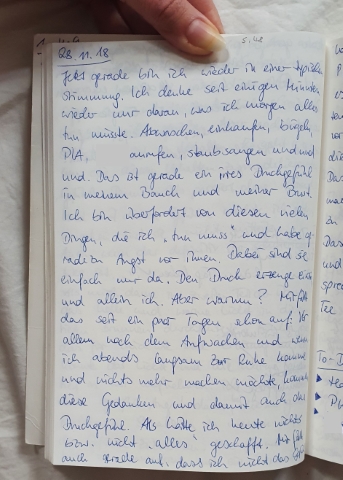 28.11.18
Jetzt gerade bin ich wieder in einer typischen
Stimmung. Ich denke seit einigen Minuten
wieder nur daran, was ich morgen alles
tun müsste. Abwaschen, einkaufen, bügeln,
anrufen, staubsaugen und und
und. Das ist gerade ein irres Druckgefühl
in meinem Bauch und meiner Brust.
Ich bin überfordert von diesen vielen
Dingen, die ich „tun muss" und habe g
radezu Angst vor ihnen. Dabei sind sie
einfach nur da. Den Druck erzeuge ein
und allein ich. Aber warum? Mir fällt
das seit ein paar Tagen schon auf: Vor
allem nach dem Aufwachen und wenn
ich abends langsam zur Ruhe komme
und nichts mehr machen möchte, kommen
diese Gedanken und damit auch das
Druckgefühl. Als hätte ich heute nichts
bzw. nicht „alles" geschafft. Mir fällt
auch gerade auf, dass ich nicht das
Tee.
To-D